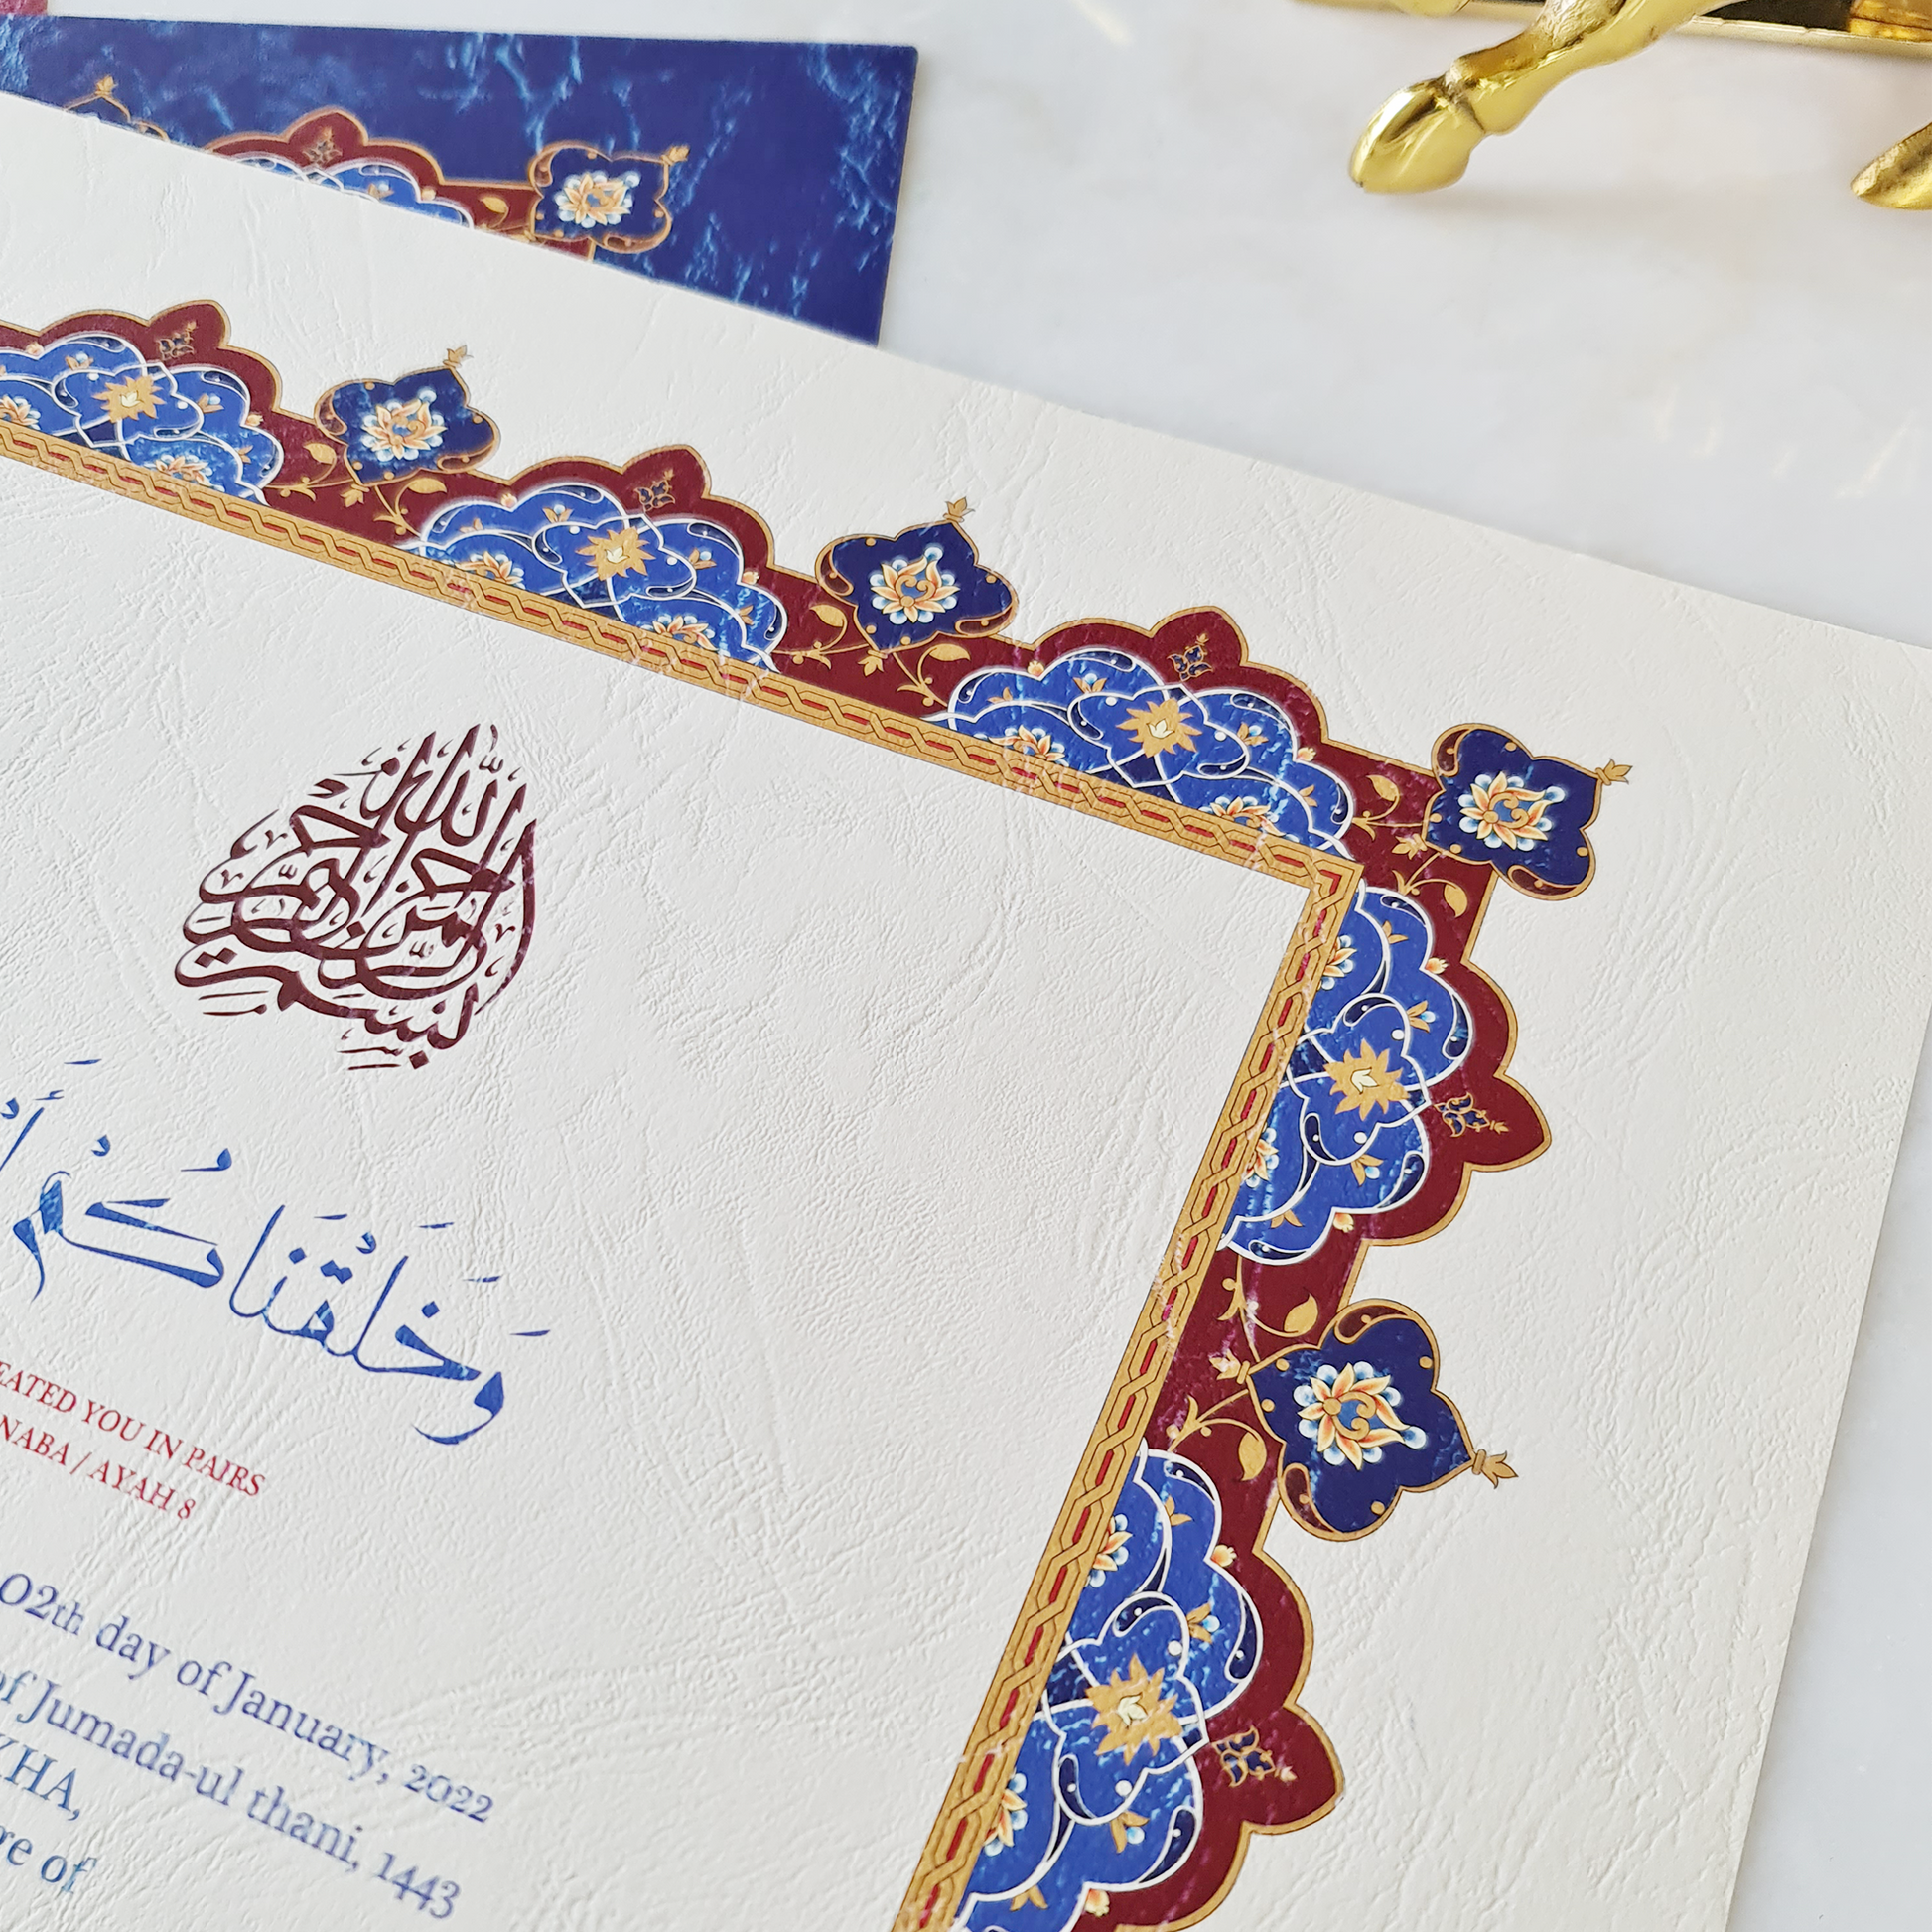 بسم الله الرحمن الرحيم
وَخَلَقْنَاكُمْ
EATED YOU IN PAIRS
NABA / AYAH 8
02th day of January, 2022
of Jumada-ul thani, 1443
KHA,
re of